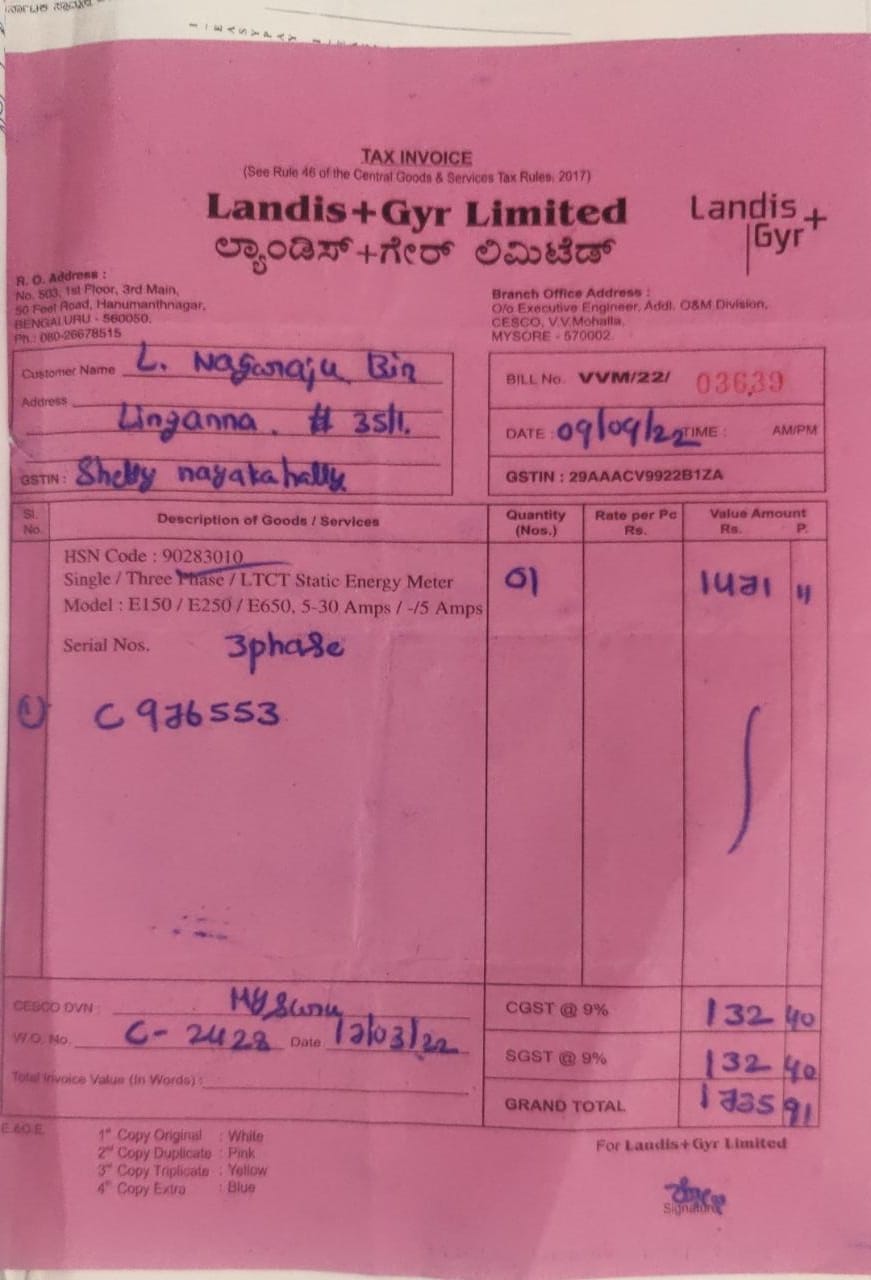 TAX INVOICE
(See Rule 46 of the Central Goods & Services Tax Rules, 2017)
Landis+Gyr Limited
Landis+
Gyr
ಲ್ಯಾಂಡಿಸ್+ಗೇರ್ ಲಿಮಿಟೆಡ್
R. O. Address :
No. 503, 1st Floor, 3rd Main,
50 Feet Road, Hanumanthnagar,
BENGALURU - 560050.
Ph.: 080-26678515
Branch Office Address :
O/o Executive Engineer, Addl. O&M Division,
CESCO, V.V.Mohalla,
MYSORE - 570002.
Customer Name L. Nagaraju Bin
Address
Linganna. # 35/1.
GSTIN : Shetty nayakahally
BILL No. VVM/22/ 03639
DATE : 09/09/22 TIME : AM/PM
GSTIN : 29AAACV9922B1ZA
Sl. No. Description of Goods / Services Quantity (Nos.) Rate per Pc Rs. Value Amount Rs. P.
HSN Code : 90283010
Single / Three Phase / LTCT Static Energy Meter 01 1471 11
Model : E150 / E250 / E650, 5-30 Amps / -/5 Amps
Serial Nos. 3phase
1) C 976553
CESCO DVN : Mysuru
W.O. No. C-2428 Date 17/03/22
Total Invoice Value (In Words) :
CGST @ 9% 132 40
SGST @ 9% 132 40
GRAND TOTAL 1735 91
E.&O.E.
1st Copy Original : White
2nd Copy Duplicate : Pink
3rd Copy Triplicate : Yellow
4th Copy Extra : Blue
For Landis+Gyr Limited
Signature